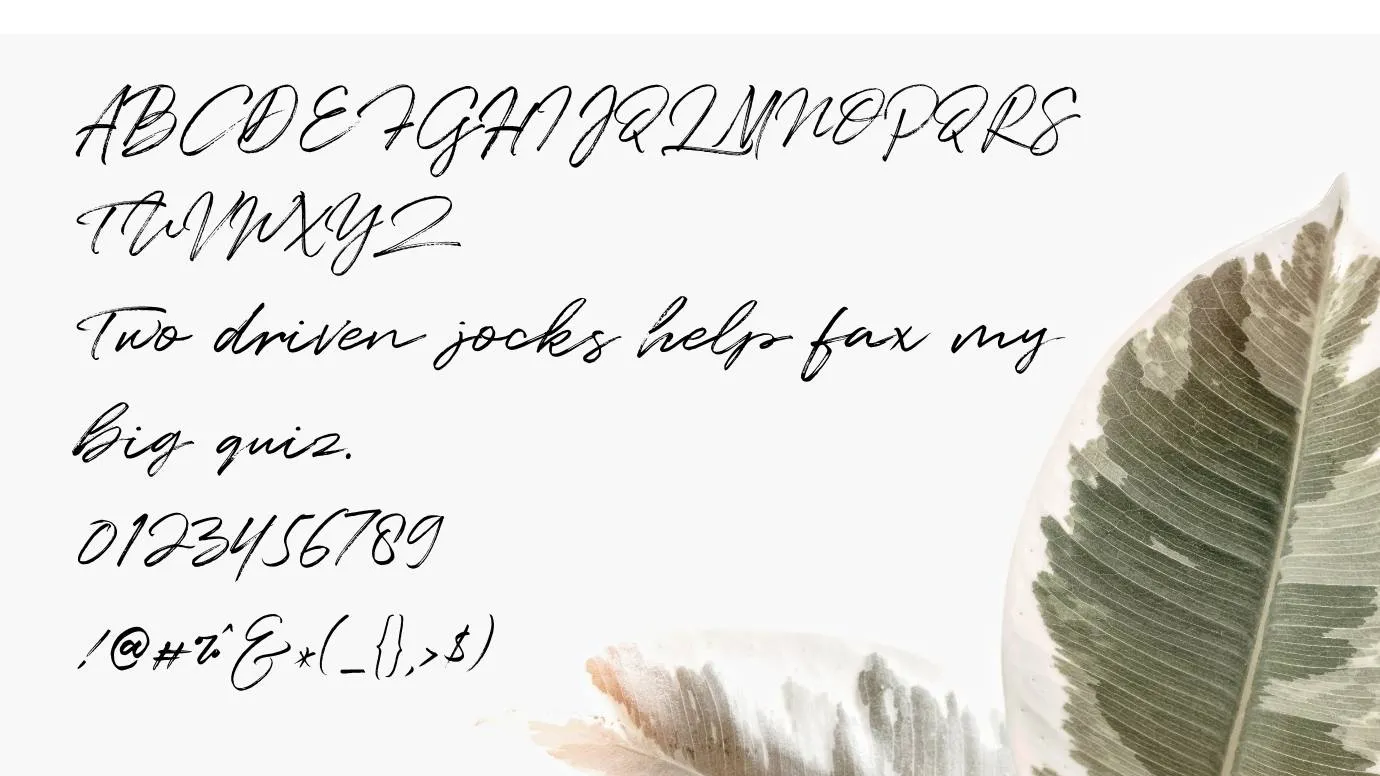 ABCDEFGHIJQLMNOPQRS
TUVWXYZ
Two driven jocks help fax my
big quiz.
0123456789
!@#%^&*(_{},>$)